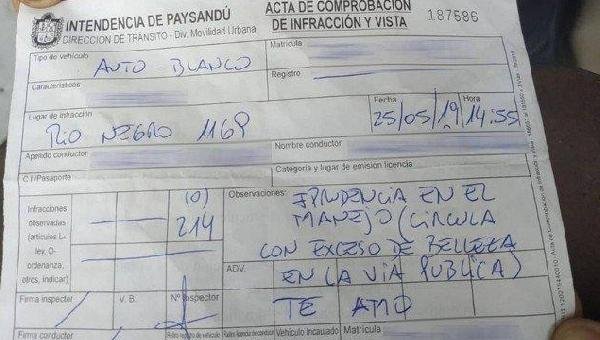 INTENDENCIA DE PAYSANDÚ
DIRECCION DE TRÁNSITO - Div. Movilidad Urbana
ACTA DE COMPROBACION
DE INFRACCIÓN Y VISTA
187586
Tipo de vehículo
AUTO BLANCO
Matrícula
Características
Registro
Lugar de infracción
RIO NEGRO 1169
Fecha
25/05/19
Hora
14:55
Apllido conductor
Nombre conductor
C.I/Pasaporte
Categoría y lugar de emisión licencia
Infracciones
observadas
(artículos L-
ley, O-
ordenanza,
otros, indicar)
(O)
214
Observaciones:
IPRUDENCIA EN EL
MANEJO (CIRCULA
CON EXCESO DE BELLEZA
ADV.
EN LA VIA PUBLICA)
TE AMO
Firma inspector
V. B.
Nº Inspector
Firma conductor
Retiro licencia de conducir
Vehículo Incautado
Matrícula